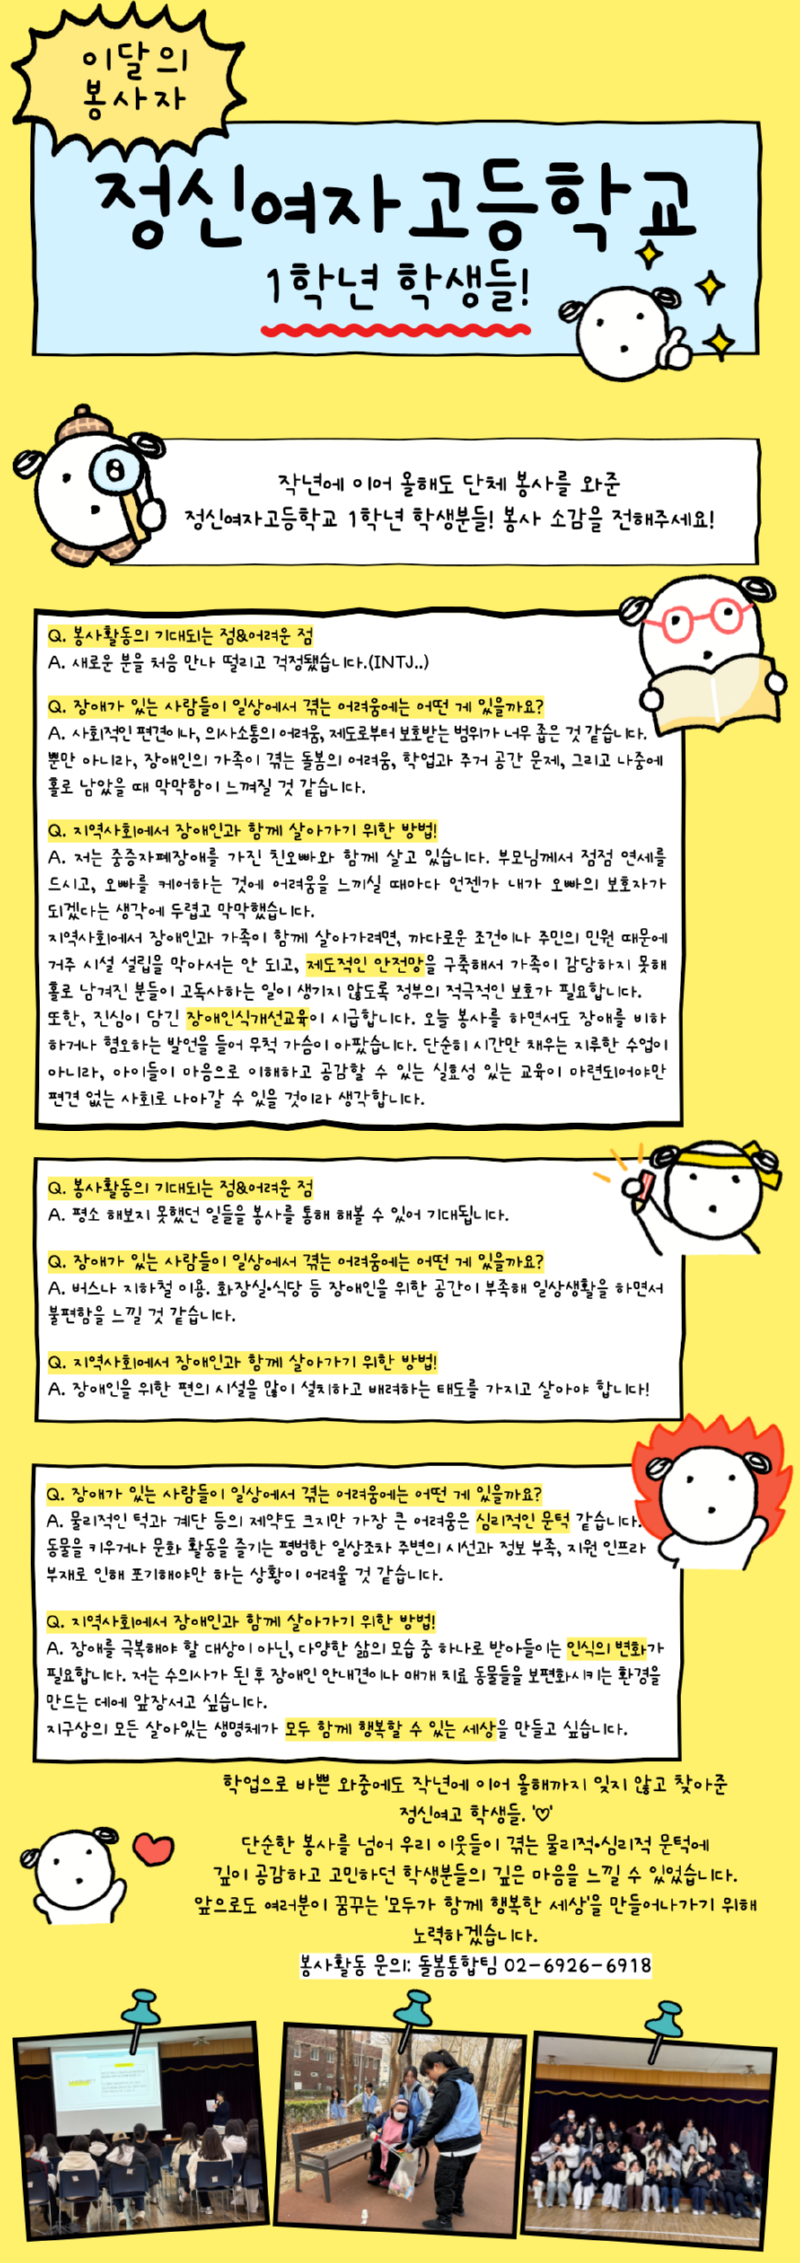 이달의
봉사자
정신여자고등학교
1학년 학생들!
작년에 이어 올해도 단체 봉사를 와준
정신여자고등학교 1학년 학생분들! 봉사 소감을 전해주세요!
Q. 봉사활동의 기대되는 점&어려운 점
A. 새로운 분을 처음 만나 떨리고 걱정됐습니다.(INTJ..)
Q. 장애가 있는 사람들이 일상에서 겪는 어려움에는 어떤 게 있을까요?
A. 사회적인 편견이나, 의사소통의 어려움, 제도로부터 보호받는 범위가 너무 좁은 것 같습니다.
뿐만 아니라, 장애인의 가족이 겪는 돌봄의 어려움, 학업과 주거 공간 문제, 그리고 나중에
홀로 남았을 때 막막함이 느껴질 것 같습니다.
Q. 지역사회에서 장애인과 함께 살아가기 위한 방법!
A. 저는 중증자폐장애를 가진 친오빠와 함께 살고 있습니다. 부모님께서 점점 연세를
드시고, 오빠를 케어하는 것에 어려움을 느끼실 때마다 언젠가 내가 오빠의 보호자가
되겠다는 생각에 두렵고 막막했습니다.
지역사회에서 장애인과 가족이 함께 살아가려면, 까다로운 조건이나 주민의 민원 때문에
거주 시설 설립을 막아서는 안 되고, 제도적인 안전망을 구축해서 가족이 감당하지 못해
홀로 남겨진 분들이 고독사하는 일이 생기지 않도록 정부의 적극적인 보호가 필요합니다.
또한, 진심이 담긴 장애인식개선교육이 시급합니다. 오늘 봉사를 하면서도 장애를 비하
하거나 혐오하는 발언을 들어 무척 가슴이 아팠습니다. 단순히 시간만 채우는 지루한 수업이
아니라, 아이들이 마음으로 이해하고 공감할 수 있는 실효성 있는 교육이 마련되어야만
편견 없는 사회로 나아갈 수 있을 것이라 생각합니다.
Q. 봉사활동의 기대되는 점&어려운 점
A. 평소 해보지 못했던 일들을 봉사를 통해 해볼 수 있어 기대됩니다.
Q. 장애가 있는 사람들이 일상에서 겪는 어려움에는 어떤 게 있을까요?
A. 버스나 지하철 이용. 화장실•식당 등 장애인을 위한 공간이 부족해 일상생활을 하면서
불편함을 느낄 것 같습니다.
Q. 지역사회에서 장애인과 함께 살아가기 위한 방법!
A. 장애인을 위한 편의 시설을 많이 설치하고 배려하는 태도를 가지고 살아야 합니다!
Q. 장애가 있는 사람들이 일상에서 겪는 어려움에는 어떤 게 있을까요?
A. 물리적인 턱과 계단 등의 제약도 크지만 가장 큰 어려움은 심리적인 문턱 같습니다.
동물을 키우거나 문화 활동을 즐기는 평범한 일상조차 주변의 시선과 정보 부족, 지원 인프라
부재로 인해 포기해야만 하는 상황이 어려울 것 같습니다.
Q. 지역사회에서 장애인과 함께 살아가기 위한 방법!
A. 장애를 극복해야 할 대상이 아닌, 다양한 삶의 모습 중 하나로 받아들이는 인식의 변화가
필요합니다. 저는 수의사가 된 후 장애인 안내견이나 매개 치료 동물들을 보편화시키는 환경을
만드는 데에 앞장서고 싶습니다.
지구상의 모든 살아있는 생명체가 모두 함께 행복할 수 있는 세상을 만들고 싶습니다.
학업으로 바쁜 와중에도 작년에 이어 올해까지 잊지 않고 찾아준
정신여고 학생들. '♡'
단순한 봉사를 넘어 우리 이웃들이 겪는 물리적•심리적 문턱에
깊이 공감하고 고민하던 학생분들의 깊은 마음을 느낄 수 있었습니다.
앞으로도 여러분이 꿈꾸는 '모두가 함께 행복한 세상'을 만들어나가기 위해
노력하겠습니다.
봉사활동 문의: 돌봄통합팀 02-6926-6918